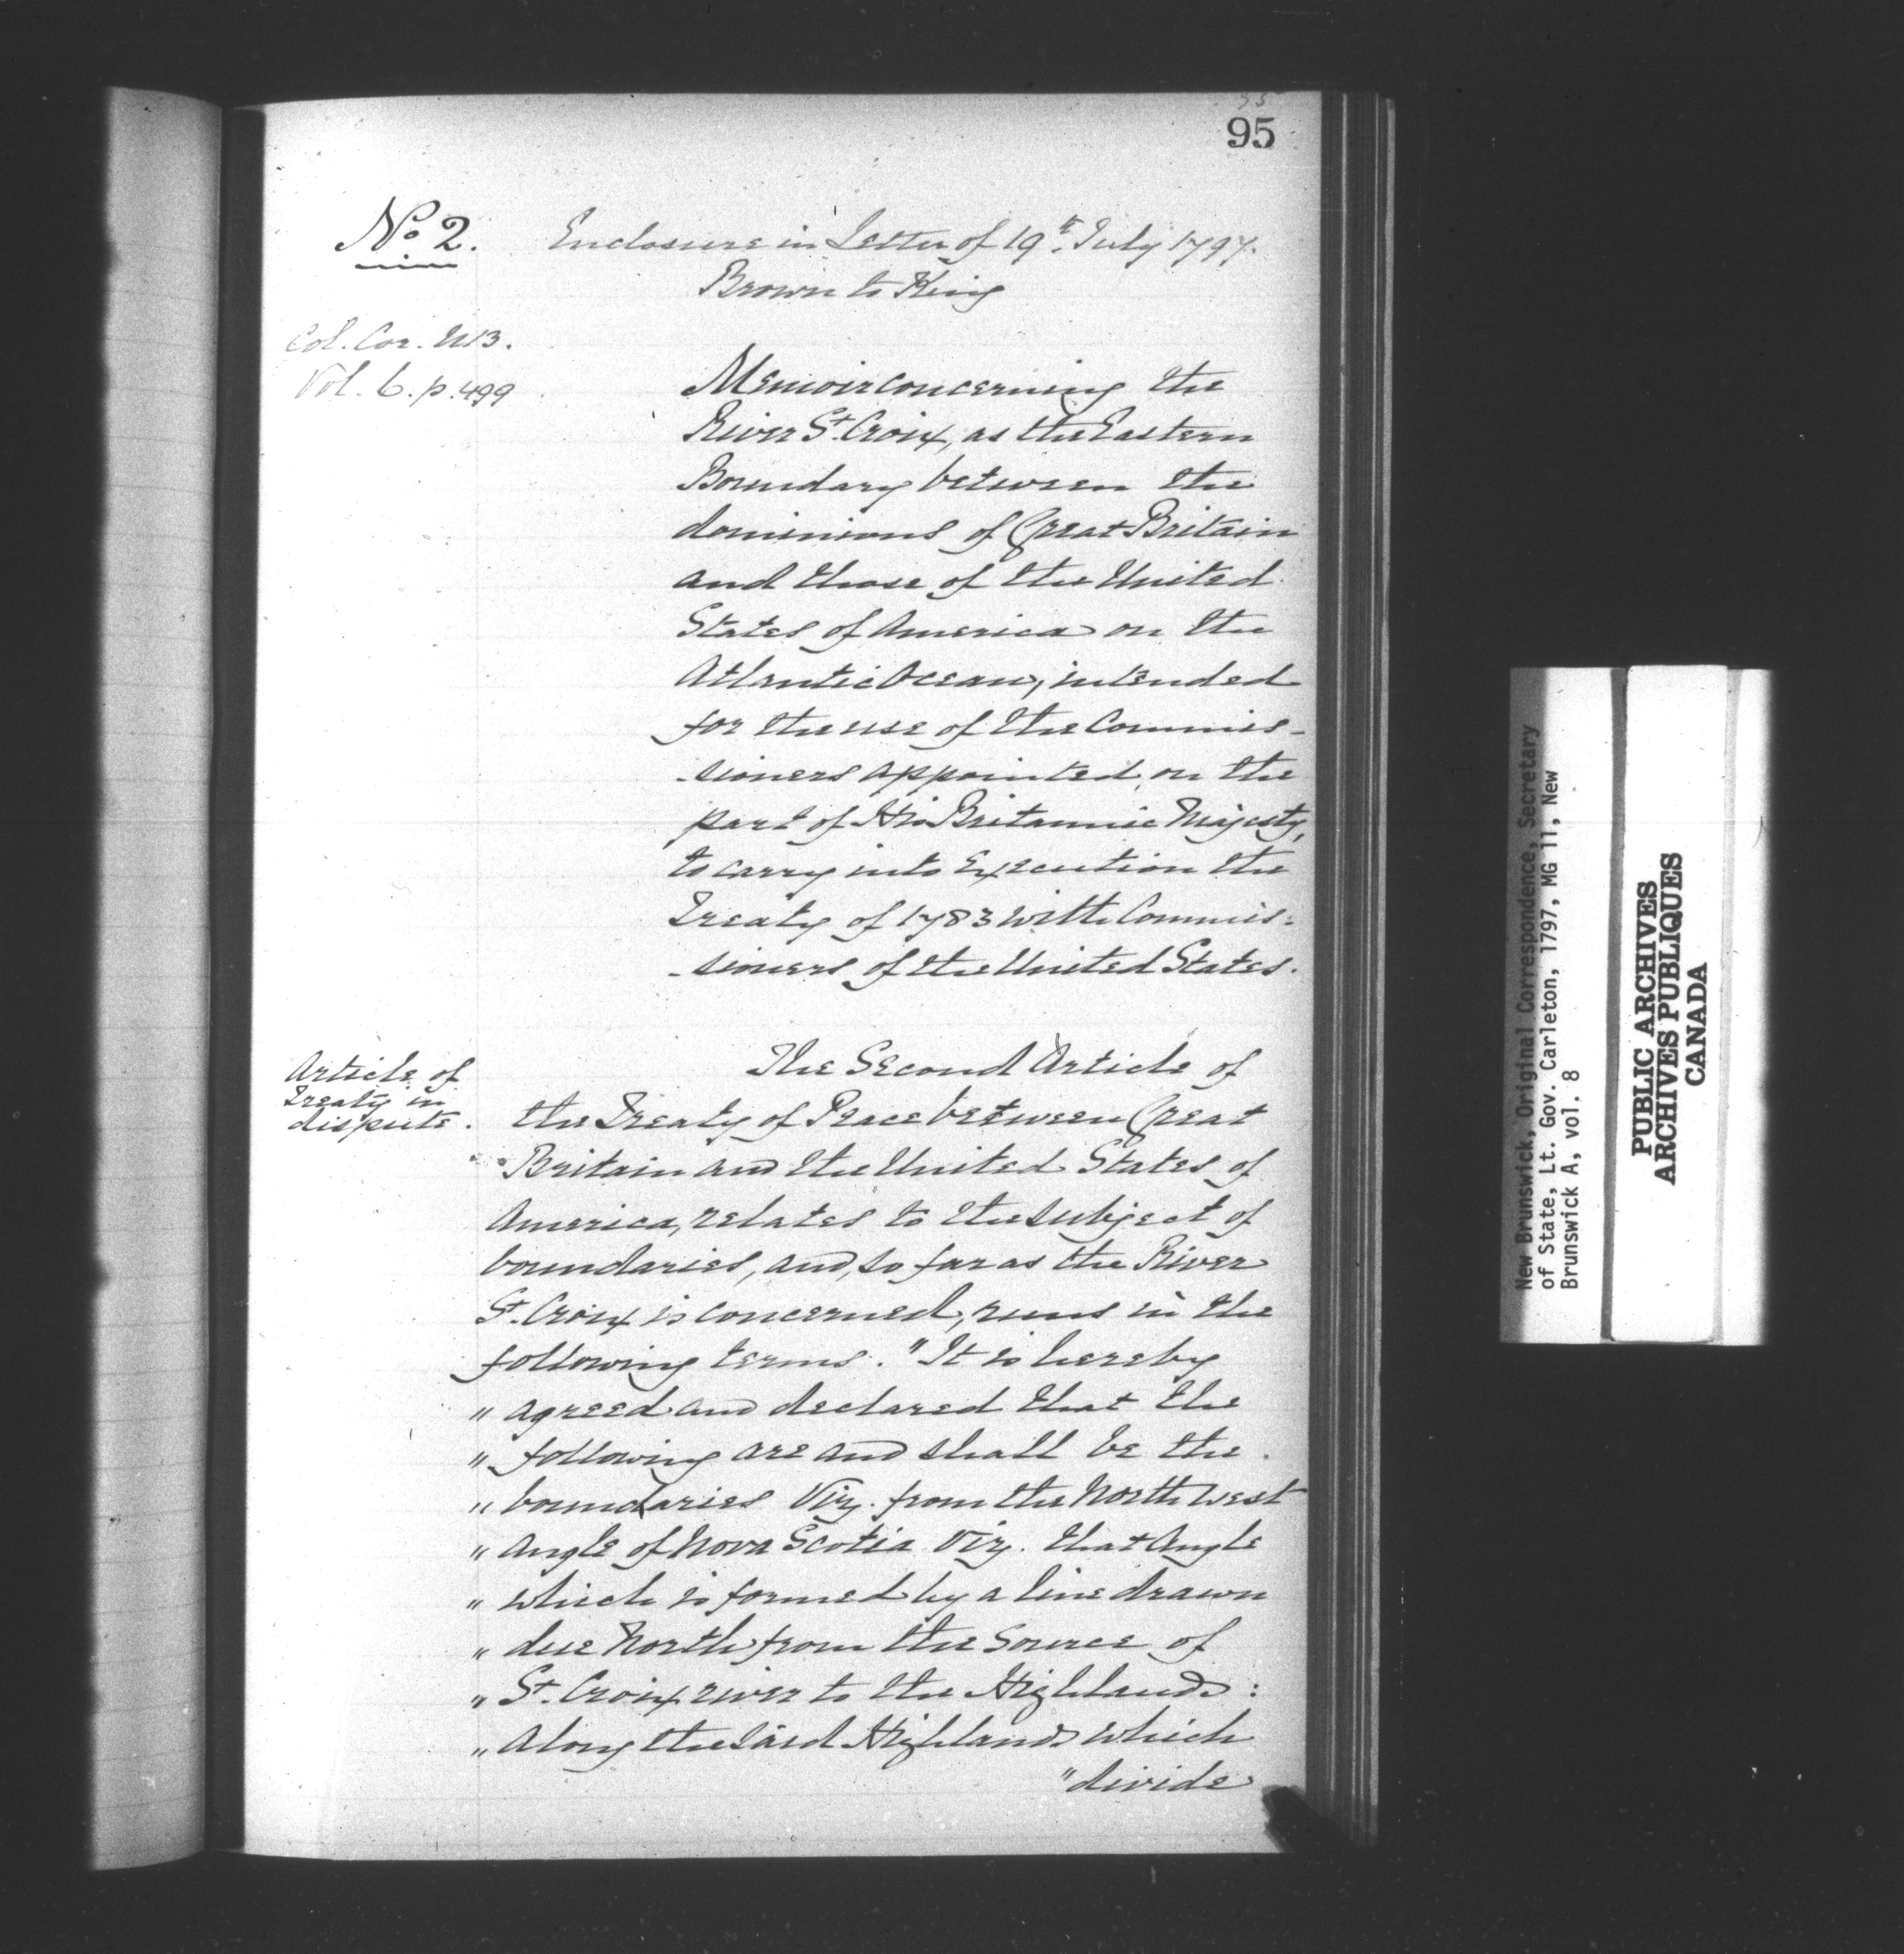 95
No. 2.
Enclosure in Letter of 19th July 1797.
Brown to King
Col. Cor. N.B.
Vol. 6. p. 499
Memoir concerning the
River St. Croix, as the Eastern
Boundary between the
dominions of Great Britain
and those of the United
States of America on the
Atlantic Ocean, intended
for the use of the Commis-
-sioners appointed, on the
part of His Britannic Majesty,
to carry into Execution the
Treaty of 1783 with Commis:
-sioners of the United States.
Article of
Treaty in
dispute.
The Second Article of
the Treaty of Peace between Great
Britain and the United States of
America, relates to the subject of
boundaries, and, so far as the River
St. Croix is concerned, runs in the
following terms. "It is hereby
" agreed and declared that the
" following are and shall be the
" boundaries Viz. from the North West
" Angle of Nova Scotia Viz. that Angle
" which is formed by a line drawn
" due North from the Source of
" St. Croix river to the Highlands:
" Along the said Highlands which
"divide
New Brunswick, Original Correspondence, Secretary
of State, Lt. Gov. Carleton, 1797, MG 11, New
Brunswick A, vol. 8
PUBLIC ARCHIVES
ARCHIVES PUBLIQUES
CANADA